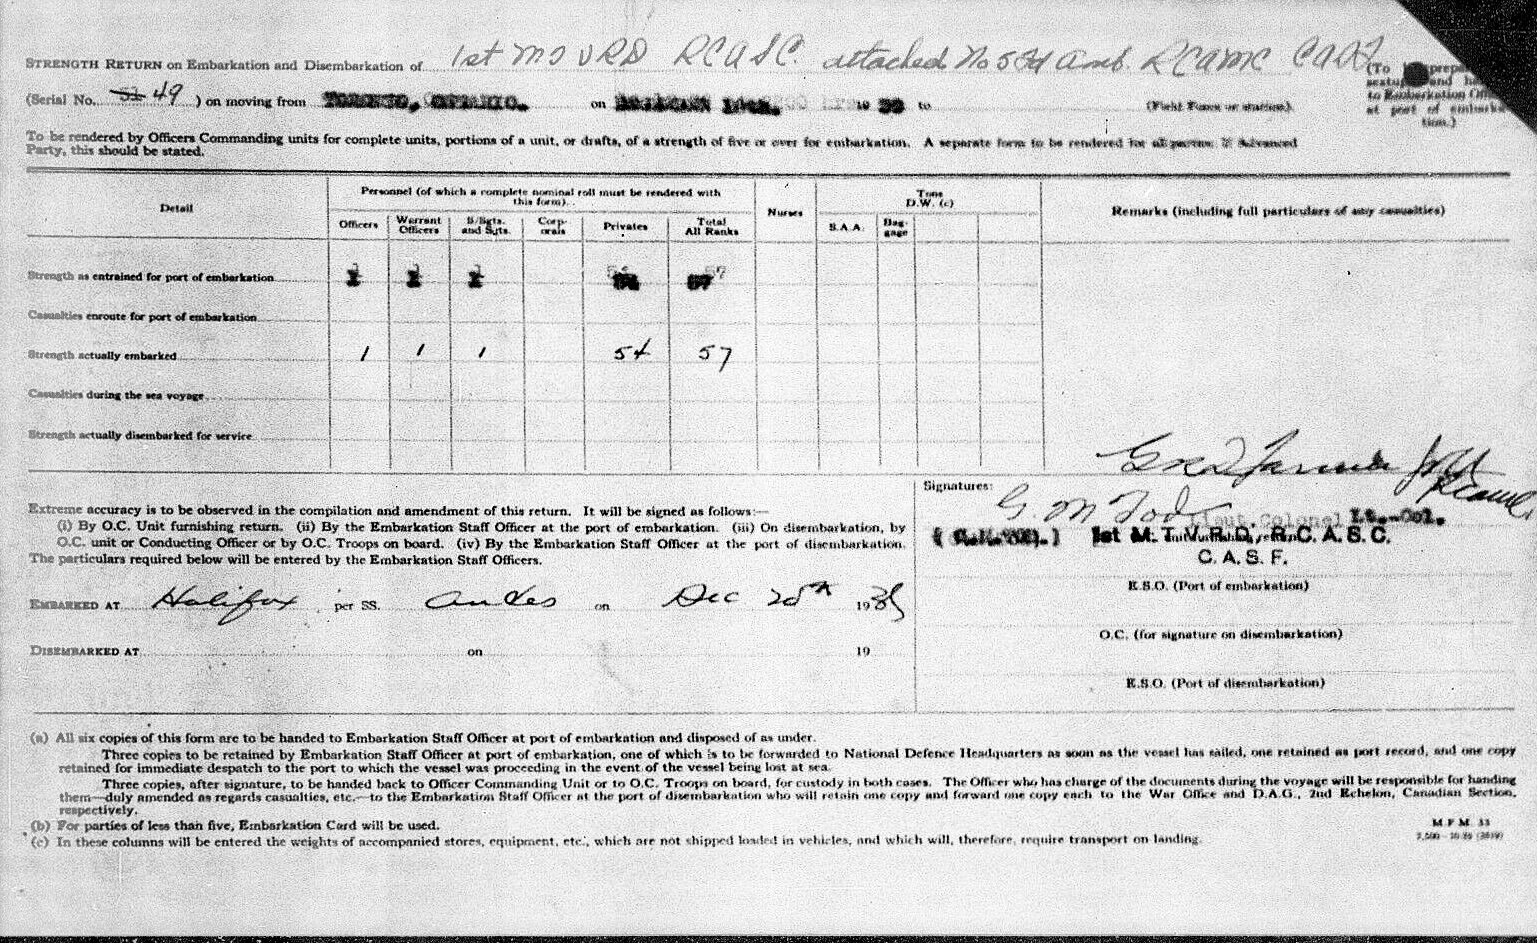 STRENGTH RETURN on Embarkation and Disembarkation of 1st M T V R D R C A S C. attached No 5 Fd Amb. R C A M C C A S F
(To prepa
and ha
to Embarkation Offi
at port of embarka-
tion.)
(Serial No. 51 49 ) on moving from TORONTO, ONTARIO. on 19 39 to (Field Force or station).
To be rendered by Officers Commanding units for complete units, portions of a unit, or drafts, of a strength of five or over for embarkation. A separate form to be rendered for all parties. If Advanced
Party, this should be stated.
Detail
Personnel (of which a complete nominal roll must be rendered with
this form).
Nurses
Tons
D.W. (c)
Remarks (including full particulars of any casualties)
Officers
Warrant
Officers
S/Sgts.
and Sgts.
Corp-
orals
Privates
Total
All Ranks
S.A.A.
Bag-
gage
Strength as entrained for port of embarkation 1 1 1 54 57
Casualties enroute for port of embarkation
Strength actually embarked 1 1 1 54 57
Casualties during the sea voyage
Strength actually disembarked for service
Signatures:
G M Todd
Lieut. Colonel Lt.-Col.
1st M. T. V. R. D., R. C. A. S. C.
C. A. S. F.
Extreme accuracy is to be observed in the compilation and amendment of this return. It will be signed as follows:—
(i) By O.C. Unit furnishing return. (ii) By the Embarkation Staff Officer at the port of embarkation. (iii) On disembarkation, by
O.C. unit or Conducting Officer or by O.C. Troops on board. (iv) By the Embarkation Staff Officer at the port of disembarkation.
The particulars required below will be entered by the Embarkation Staff Officers.
E.S.O. (Port of embarkation)
EMBARKED AT Halifax per SS. Andes on Dec 20th 1939
O.C. (for signature on disembarkation)
DISEMBARKED AT on 19
E.S.O. (Port of disembarkation)
(a) All six copies of this form are to be handed to Embarkation Staff Officer at port of embarkation and disposed of as under.
Three copies to be retained by Embarkation Staff Officer at port of embarkation, one of which is to be forwarded to National Defence Headquarters as soon as the vessel has sailed, one retained as port record, and one copy
retained for immediate despatch to the port to which the vessel was proceeding in the event of the vessel being lost at sea.
Three copies, after signature, to be handed back to Officer Commanding Unit or to O.C. Troops on board, for custody in both cases. The Officer who has charge of the documents during the voyage will be responsible for handing
them—duly amended as regards casualties, etc.—to the Embarkation Staff Officer at the port of disembarkation who will retain one copy and forward one copy each to the War Office and D.A.G., 2nd Echelon, Canadian Section,
respectively.
(b) For parties of less than five, Embarkation Card will be used.
(c) In these columns will be entered the weights of accompanied stores, equipment, etc., which are not shipped loaded in vehicles, and which will, therefore, require transport on landing.
M.F.M. 33